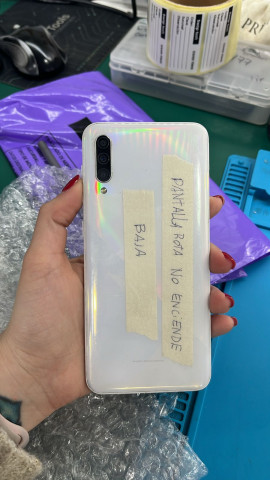 PANTALLA ROTA NO ENCIENDE
BAJA